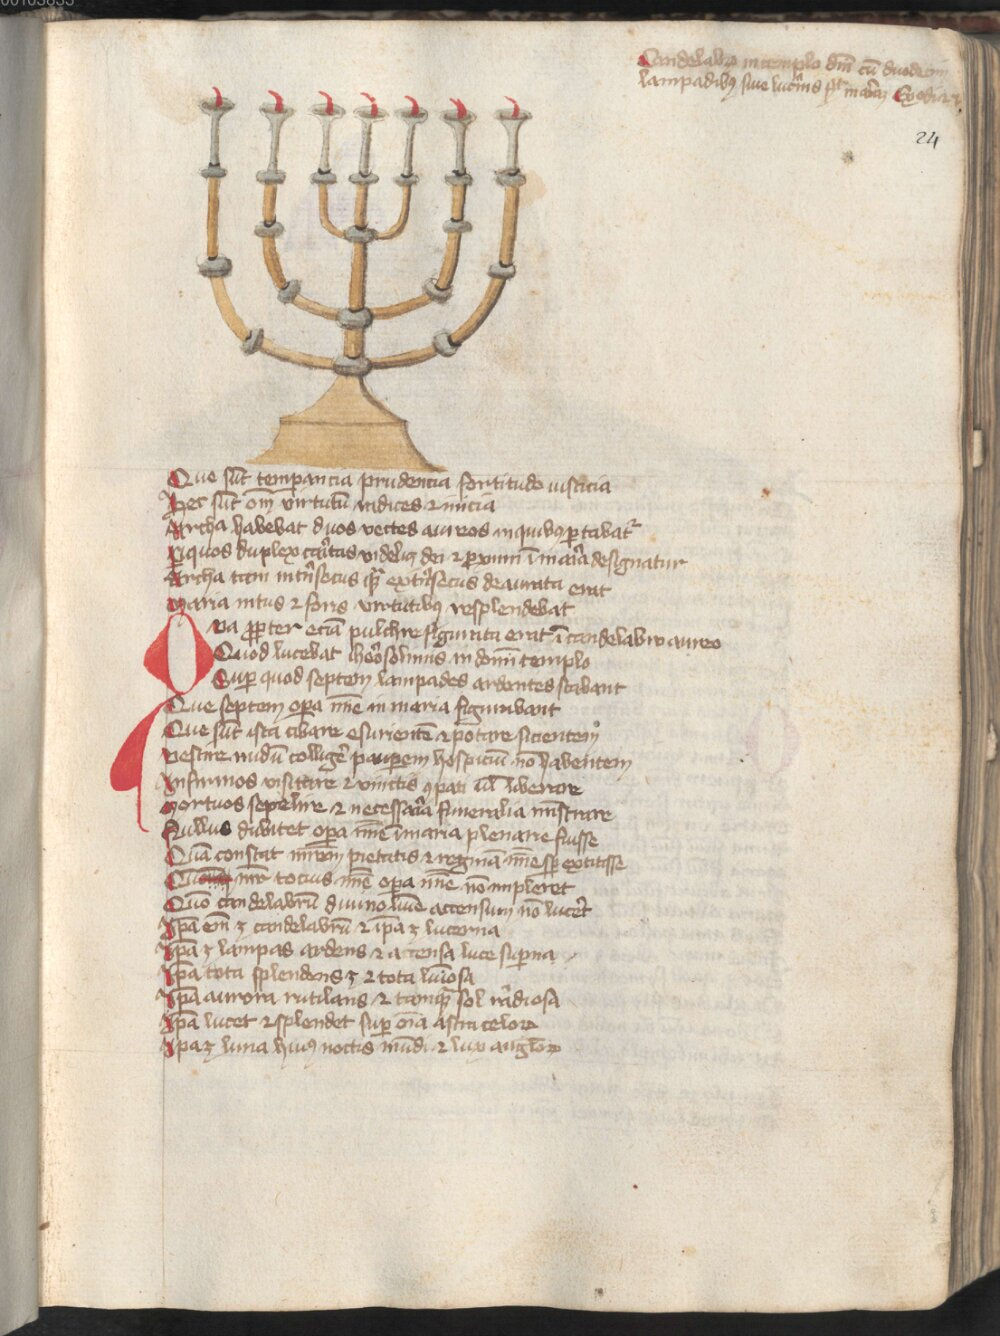 00103833
Candelabrū in templo dnī cū duodecim
lampadibꝰ siue lucernis
24
Que sūt temperancia prudencia fortitudo iusticia
Hec sūt oīm virtutū radices ⁊ inicia
Archa habebat duos vectes aureos in quibꝰ portabatʳ
Per quos duplex caritas videlicꝫ dei ⁊ proximi ī maria designatur
Archa tam intrinsecus quā extrinsecus deaurata erat
Maria intus ⁊ foris virtutibꝰ resplendebat
Quapropter eciā pulchre figurata erat ī candelabro aureo
Quod lucebat iherosolimis in domī templo
Super quod septem lampades ardentes stabant
Que septem opera mīe in maria figurabant
Que sūt ista cibare esurientē ⁊ potare sicientem
Vestire nudū colligere pauperem hospiciū nō habentem
Infirmos visitare ⁊ vinctis cōpati ūl liberare
Mortuos sepelire ⁊ necessaria funeralia mīstrare
Nullus dubitet opera mīe ī maria plenarie fuisse
Quā constat matrem pietatis ⁊ reginam mīe semper extitisse
Quomodo mater tocius mīe opera mīe nō impleret
Quō candelabrū diuino lumīe accensum nō luceret
Ipā enī ē candelabrū ⁊ ipā ē lucerna
Ipā ē lampas ardens ⁊ accensa luce superna
Ipā tota splendens ē ⁊ tota lumīosa
Ipā aurora rutilans ⁊ tanquā sol radiosa
Ipā lucet ⁊ splendet super oīa astra celorꝫ
Ipa ē luna huiꝰ noctis mūdi ⁊ lux anglorꝫ